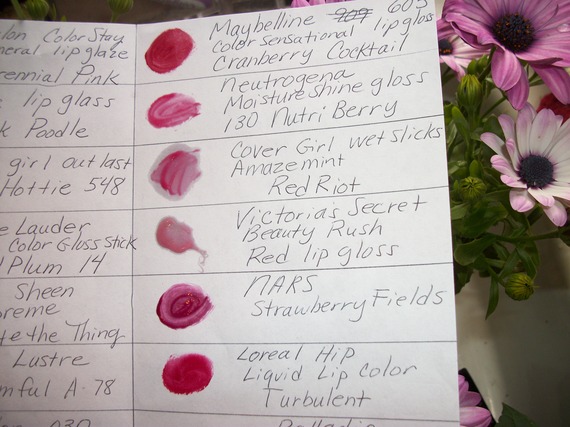 Color Stay
lip glaze
Pnk
lip glass
Poodle
girl outlast
Hottie 548
Lauder
Color Gloss Stick
Plum 14
Sheen
the Thing
Lustre
A-78
Maybelline 605
Color Sensational lipgloss
Cranberry Cocktail
neutrogena
Moisture Shine gloss
130 Nutri Berry
Cover Girl wetslicks
Amazemint
Red Riot
Victoria's Secret
Beauty Rush
Red lip gloss
NARS
Strawberry Fields
Loreal Hip
Liquid Lip Color
Turbulent